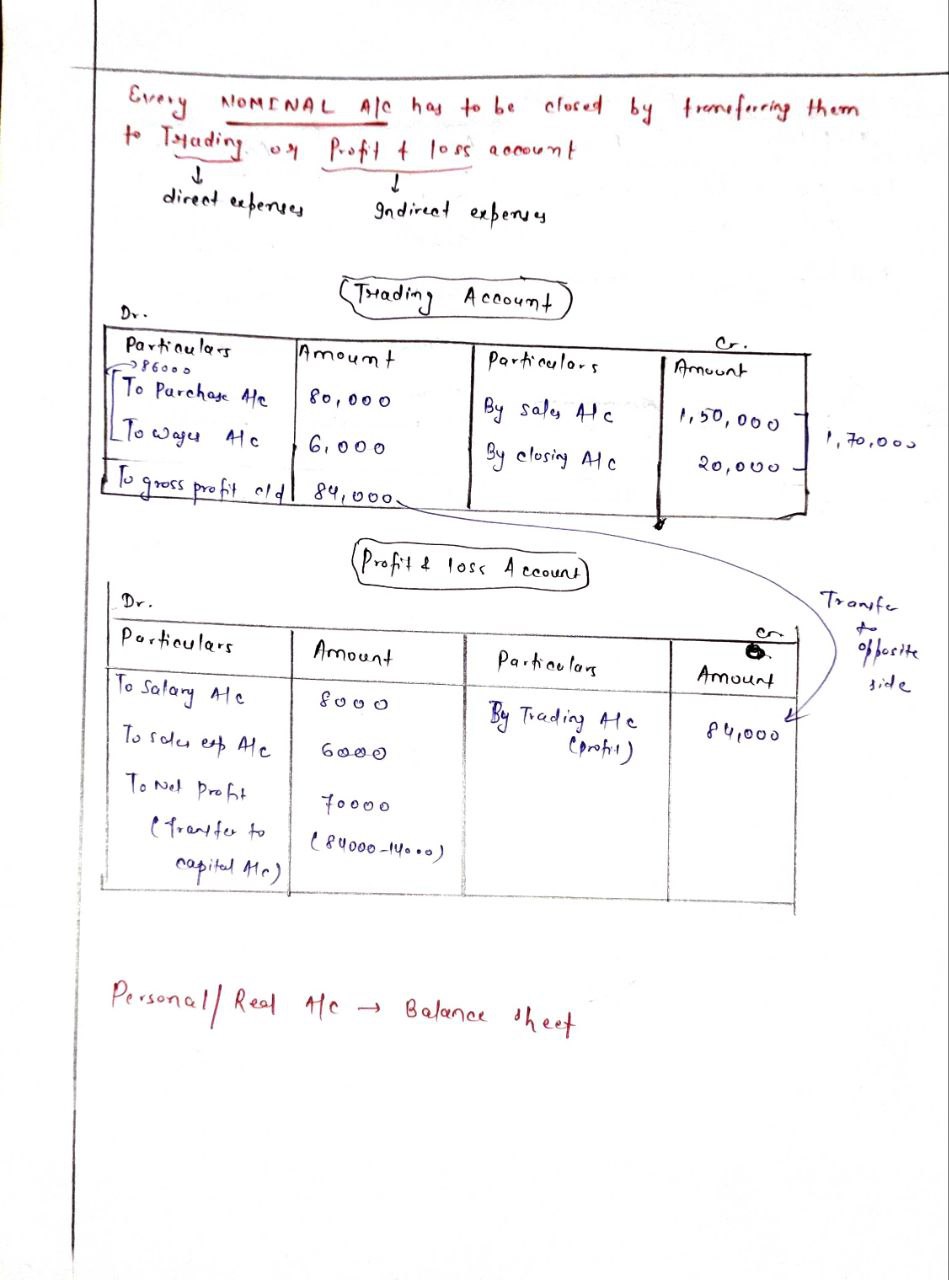 Every NOMINAL A/c has to be closed by transferring them
to Trading or Profit & loss account
↓ ↓
direct expenses Indirect expenses
Trading Account
Dr. Cr.
Particulars Amount Particulars Amount
→86000
To Purchase A/c 80,000 By sales A/c 1,50,000
To wages A/c 6,000 By closing A/c 20,000 1,70,000
To gross profit c/d 84,000
Profit & loss Account
Transfer
to
opposite
side
Dr. Cr.
Particulars Amount Particulars Amount
To Salary A/c 8000 By Trading A/c 84,000
(profit)
To sales exp A/c 6000
To Net Profit 70000
(Transfer to (84000-14000)
capital A/c)
Personal/Real A/c → Balance sheet